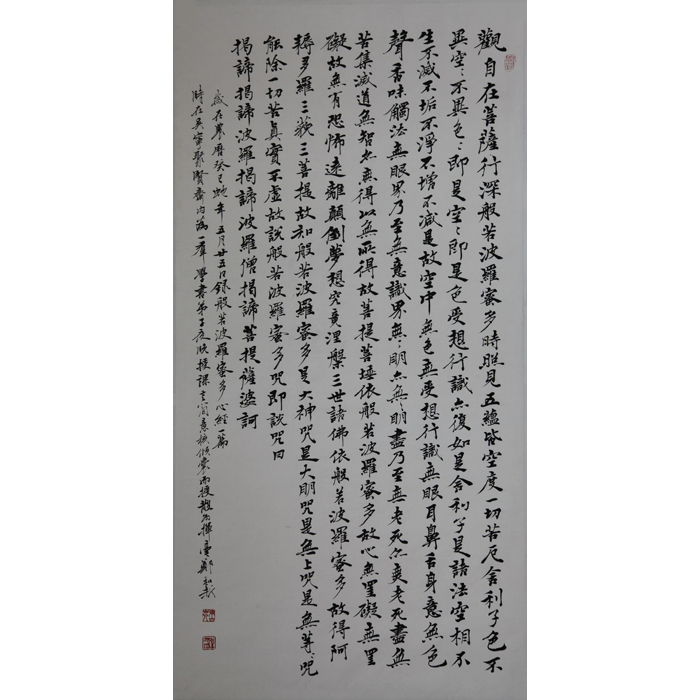 觀自在菩薩行深般若波羅蜜多時照見五蘊皆空度一切苦厄舍利子色不
異空〻不異色〻即是空〻即是色受想行識亦復如是舍利子是諸法空相不
生不滅不垢不淨不增不減是故空中無色無受想行識無眼耳鼻舌身意無色
聲香味觸法無眼界乃至無意識界無〻明亦無〻明盡乃至無老死亦無老死盡無
苦集滅道無智亦無得以無所得故菩提菩埵依般若波羅蜜多故心無罣礙無罣
礙故無有恐怖遠離顛倒夢想究竟涅槃三世諸佛依般若波羅蜜多故得阿
耨多羅三藐三菩提故知般若波羅蜜多是大神咒是大明咒是無上咒是無等〻咒
能除一切苦真實不虛故說般若波羅蜜多咒即說咒曰
揭諦揭諦波羅揭諦波羅僧揭諦菩提薩婆訶
歲在農曆癸巳蛇年五月廿五日錄般若波羅蜜多心經一篇
時在吳寧聚賢齋內為一群學書弟子夜晚授課之間